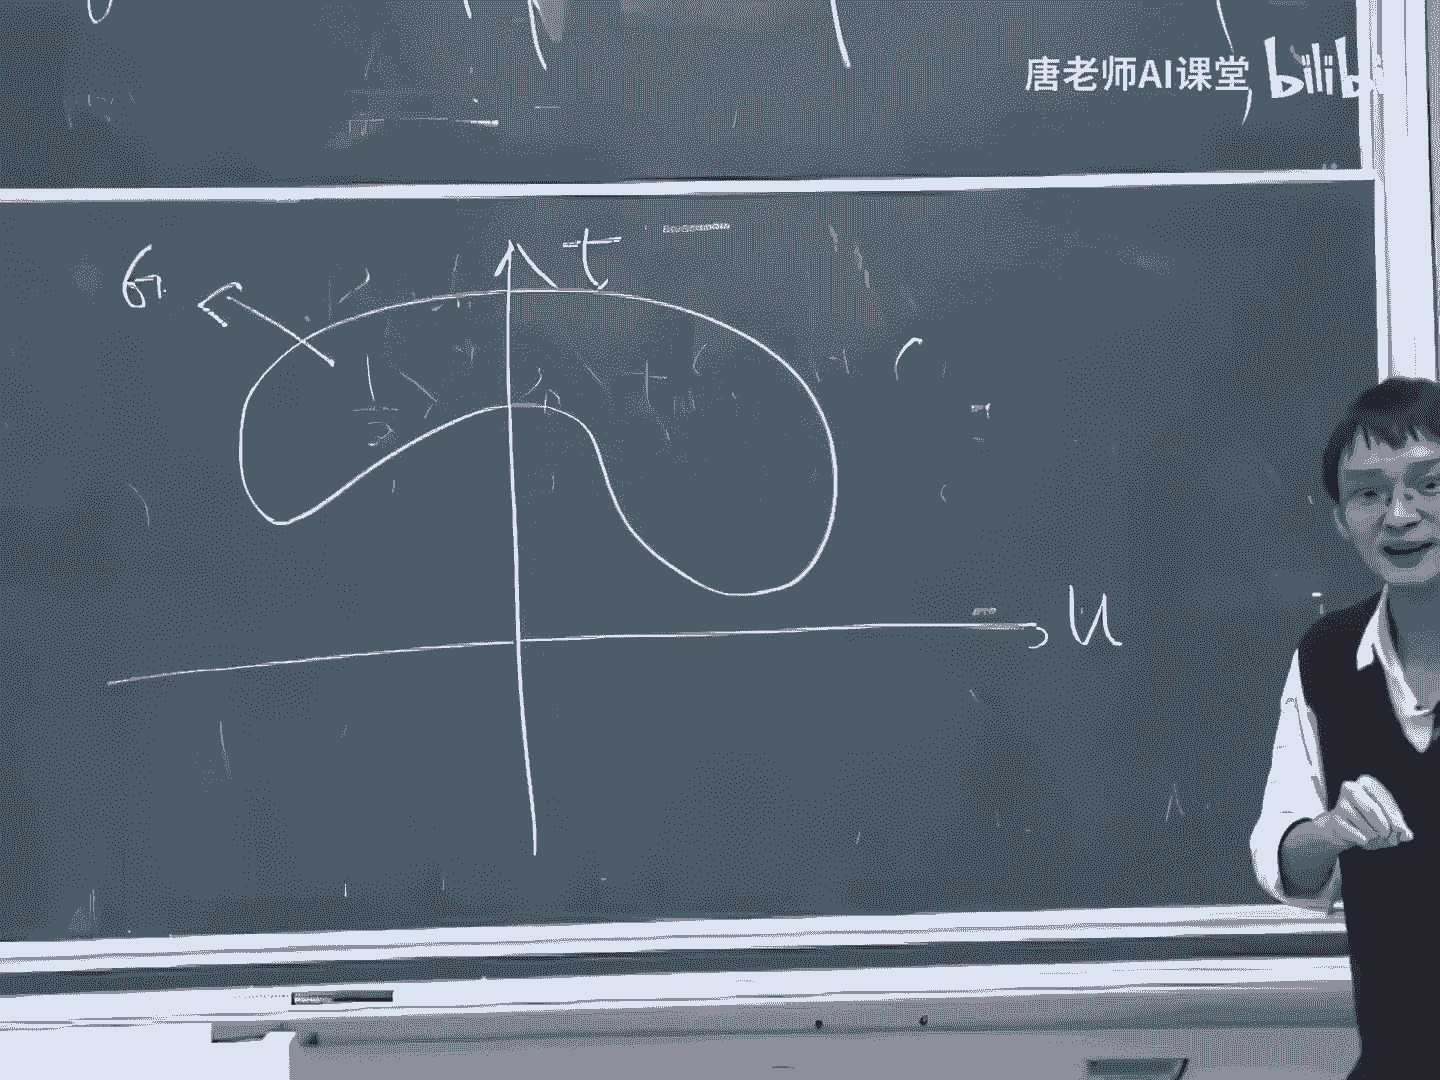 唐老师AI课堂 bilibi
t
G
u